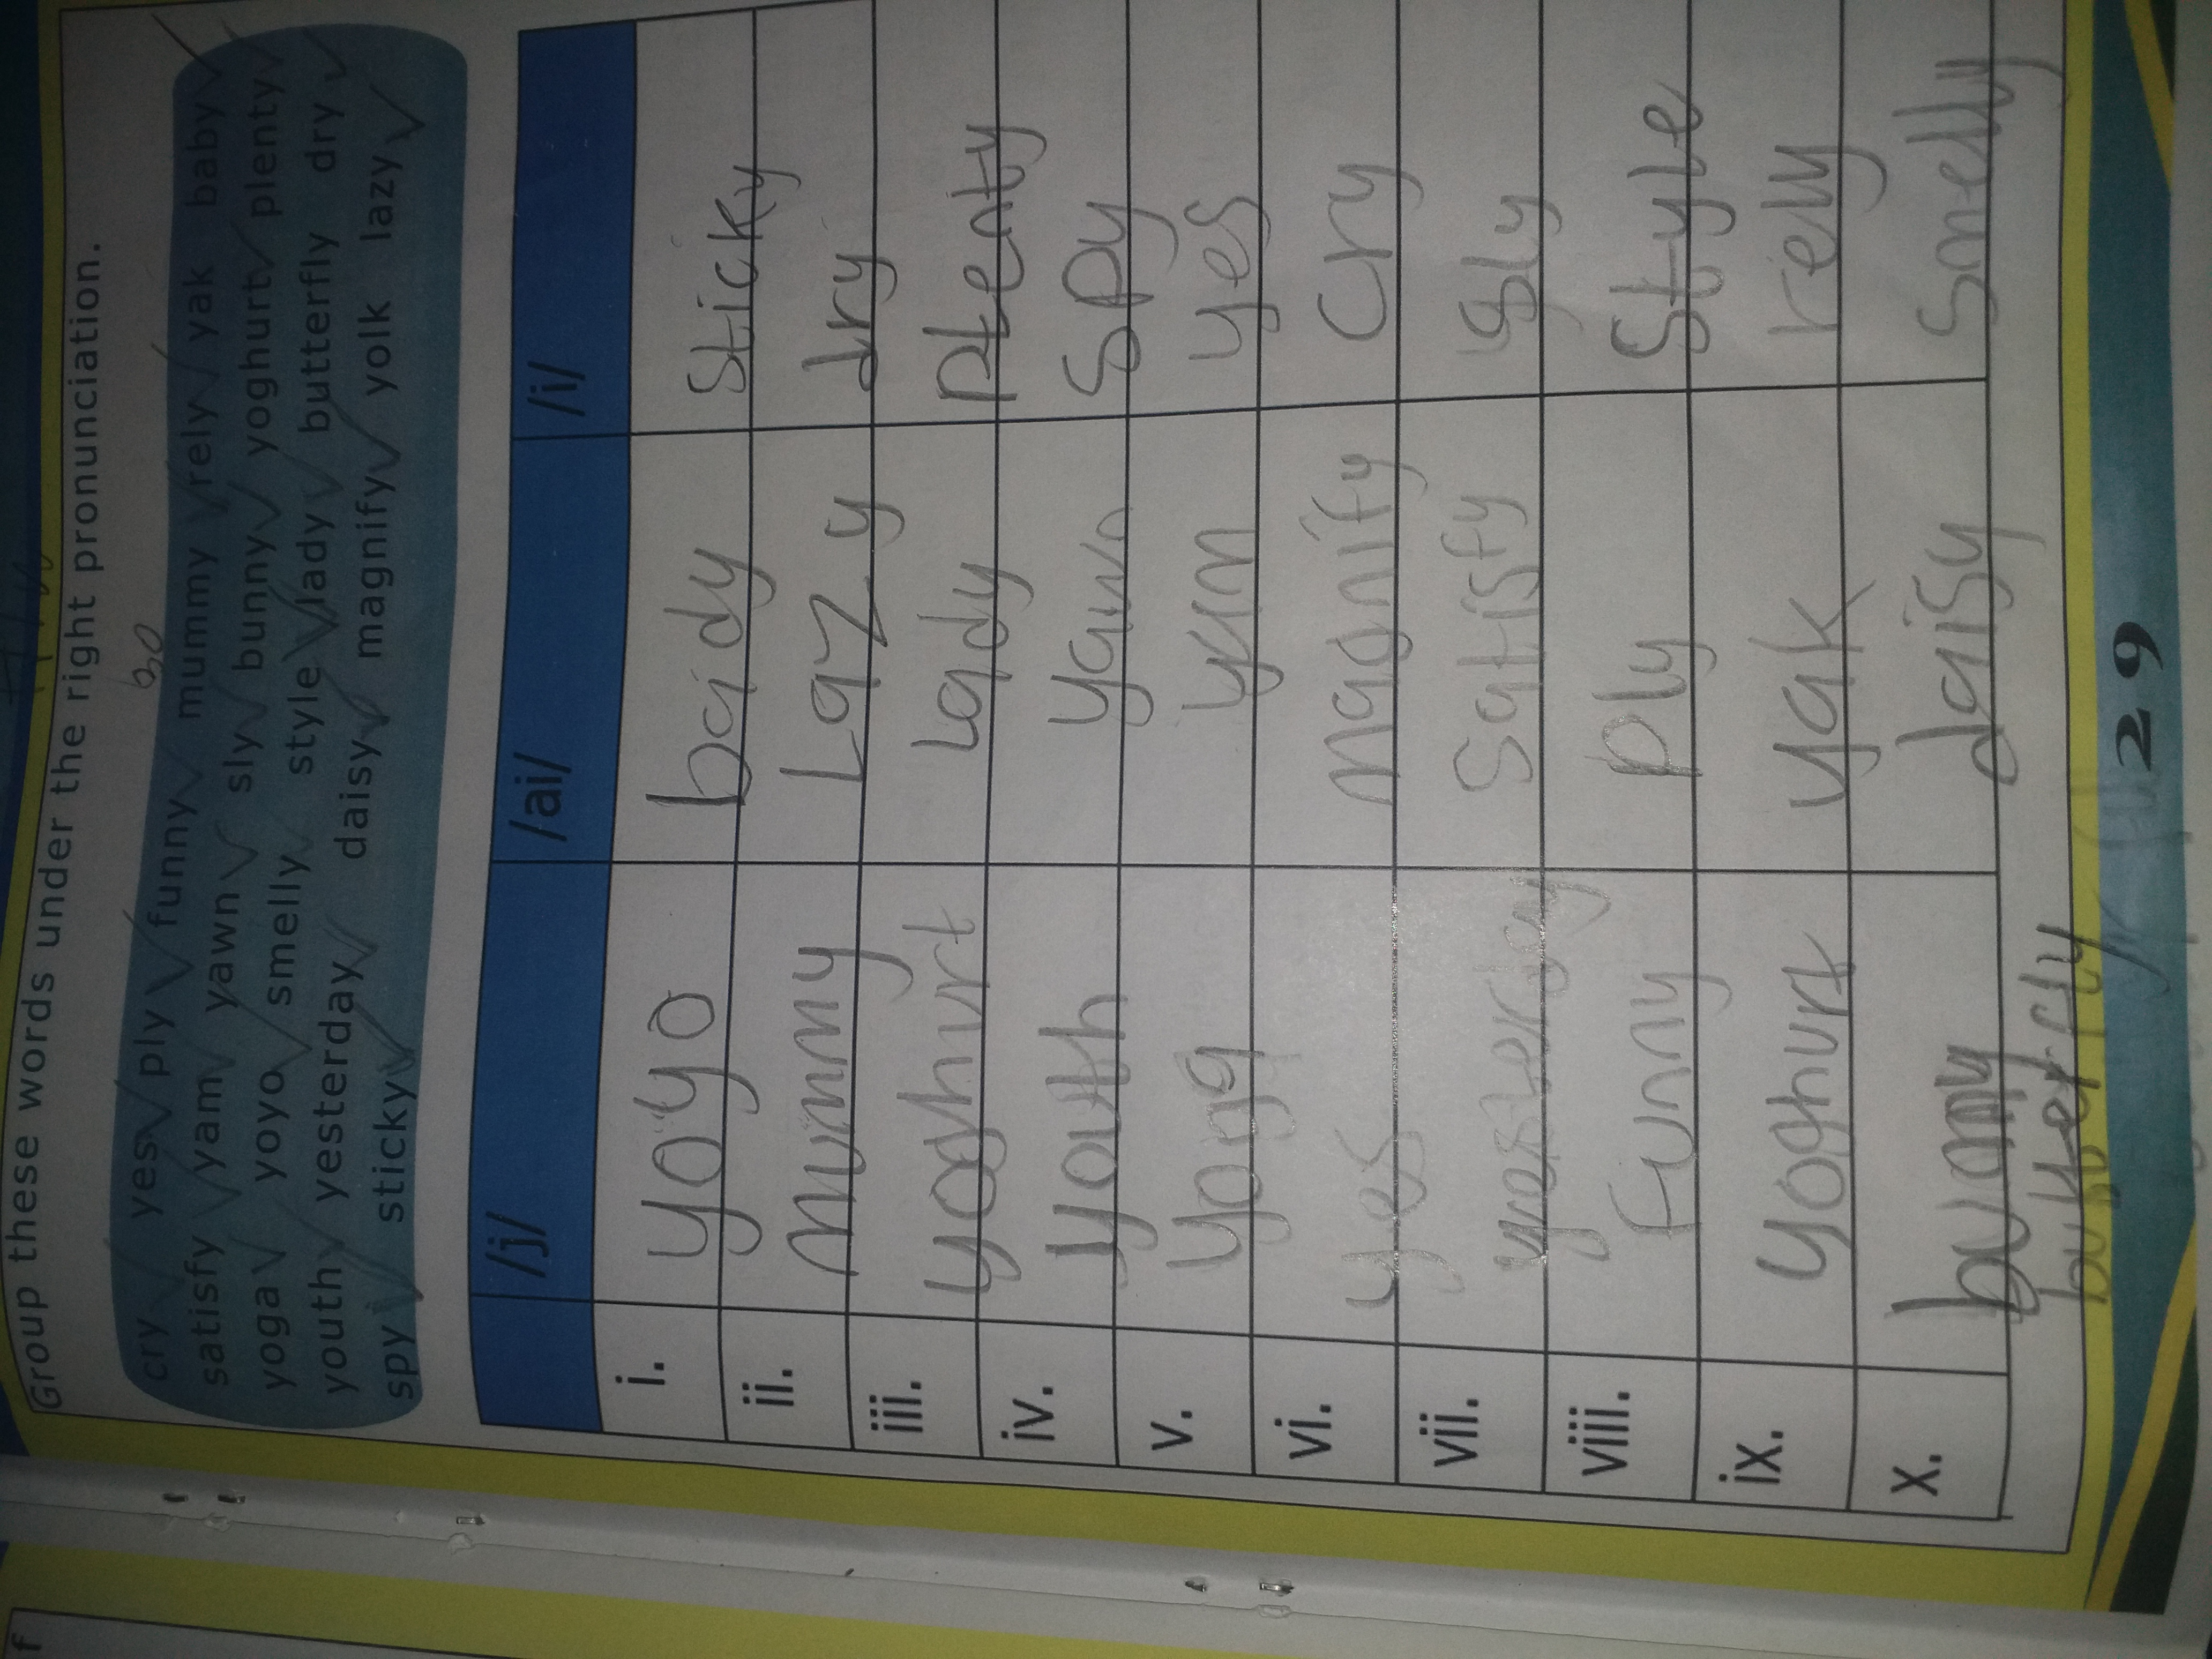 Group these words under the right pronunciation.
30
cry yes ply funny mummy rely yak baby
satisfy yam yawn sly bunny yoghurt plenty
yoga yoyo smelly style lady butterfly dry
youth yesterday daisy magnify volk lazy
spy sticky
/j/ /ai/ /i/
i. yoyo baidy sticky
ii. mummy Lazy dry
iii. yoghurt Lady plenty
iv. youth yawn spy
v. yoga yam yes
vi. yes magnify cry
vii. yesterday Satisfy Sly
viii. funny ply Style
ix. yoghurt yak relly
x. bunny daisy Smelly
29
f